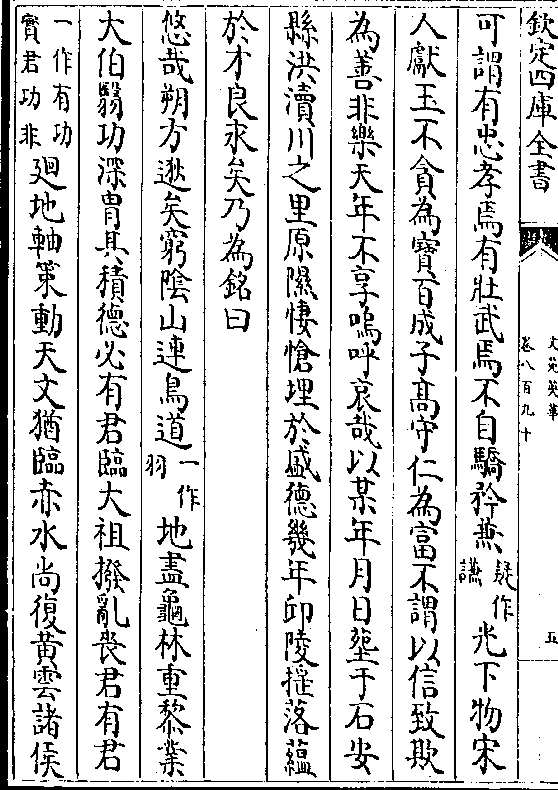 欽定四庫全書
文苑英華
卷八百九十
五
可謂有忠孝焉有壯武焉不自驕矜燕疑作謙光下物宋
人獻玉不貪為寶百成子高守仁為富不謂以信致欺
為善非樂天年不享嗚呼哀哉以某年月日塟于石安
縣洪瀆川之里原隰悽愴埋於盛德幾年邱陵摧落蘊
於才良永矣乃為銘曰
悠哉朔方逖矣窮陰山連鳥道一作羽地盡龜林重黎業
大伯翳功深胄其積德必有君臨大祖撥亂喪君有君
一作有功實君功非廻地軸策動天文猶臨赤水尚復黄雲諸侯